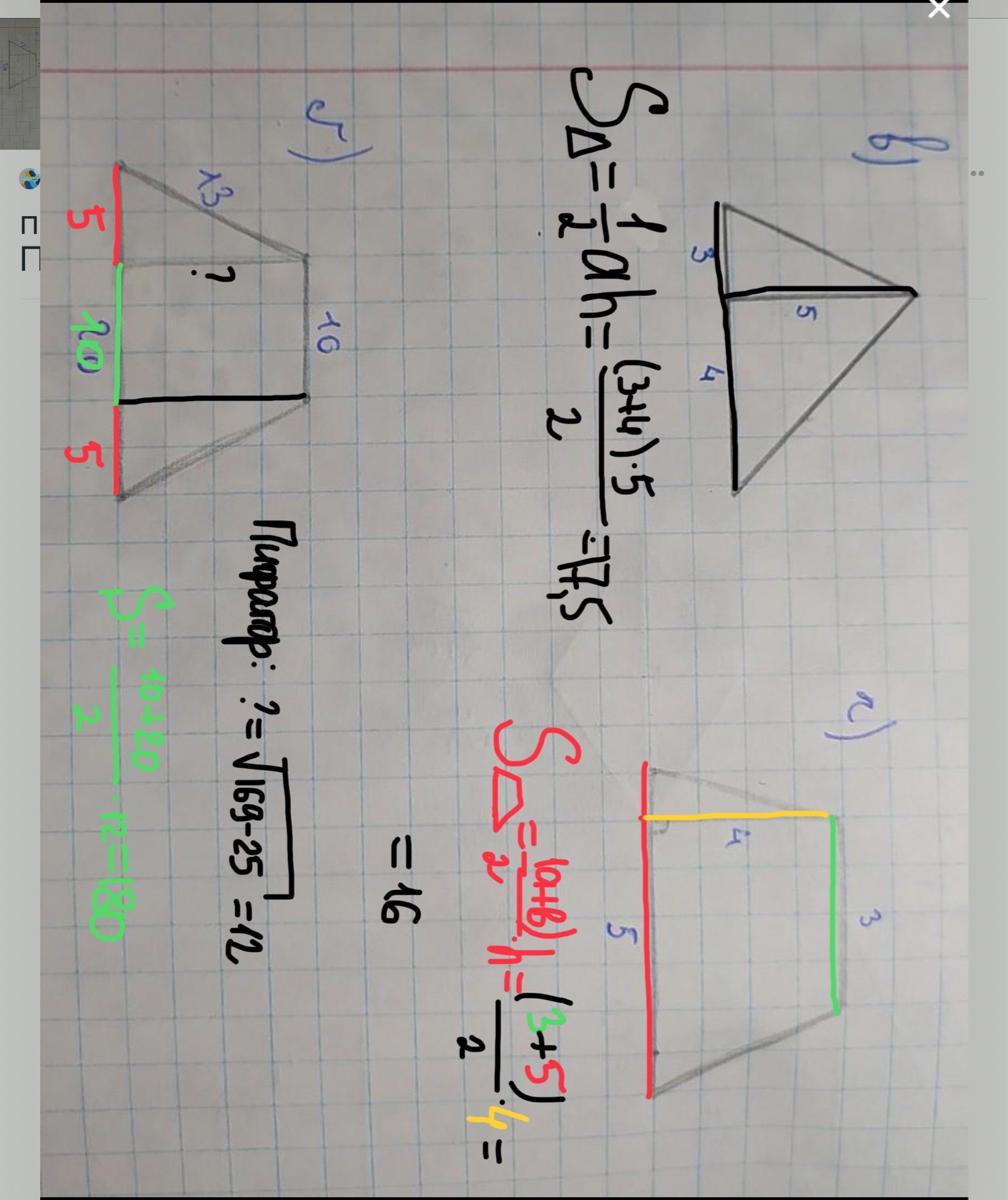 в)
3
5
4
S△ = 1/2 ah = (3+4)·5/2 = 17,5
г)
3
4
5
S = (a+b)/2 · h = (3+5)/2 · 4 =
= 16
д)
13
10
?
5
5
Пифагор: ? = √169-25 = 12
S = 10+20/2 · 12 = 180